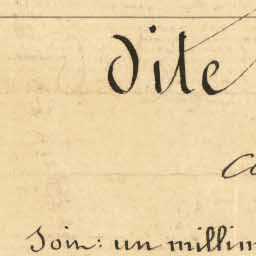 dite
Soin: un millim